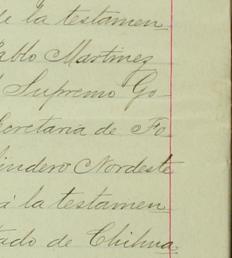 de la testamen
Pablo Martinez
l Supremo Go-
ecretaria de Fo
lindero Nordeste
á la testamen
tado de Chihua